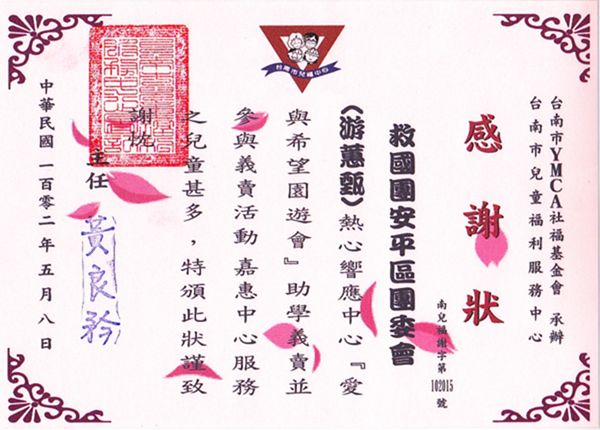 台南市兒福中心
台南市YMCA社福基金會 承辦
台南市兒童福利服務中心
感謝狀
南兒福謝字第102015號
救國團安平區團委會
(游蕙甄)熱心響應中心『愛
與希望園遊會』助學義賣並
參與義賣活動嘉惠中心服務
之兒童甚多，特頒此狀謹致
謝忱
主任 黃良矜
中華民國一百零二年五月八日